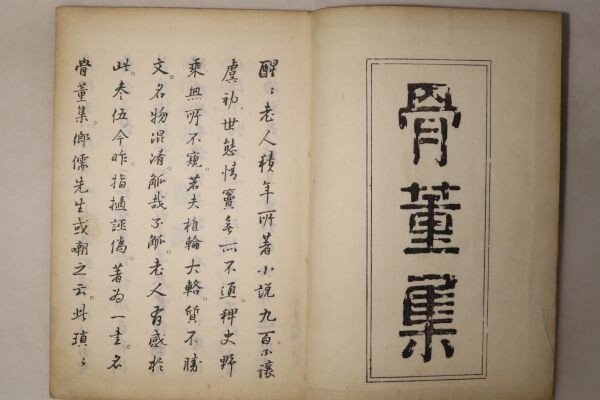 骨董集
醒〻老人積年所著小說九百不讓
虞初世態情竇無所不通稗史野
乘無所不窺若夫椎輪大輅質不勝
文。名物混淆。觚哉不觚。老人有感於
此。参伍今昨。指擿誣偽。著為一書。名
骨董集。鄉儒先生或嘲之云。此瑣〻